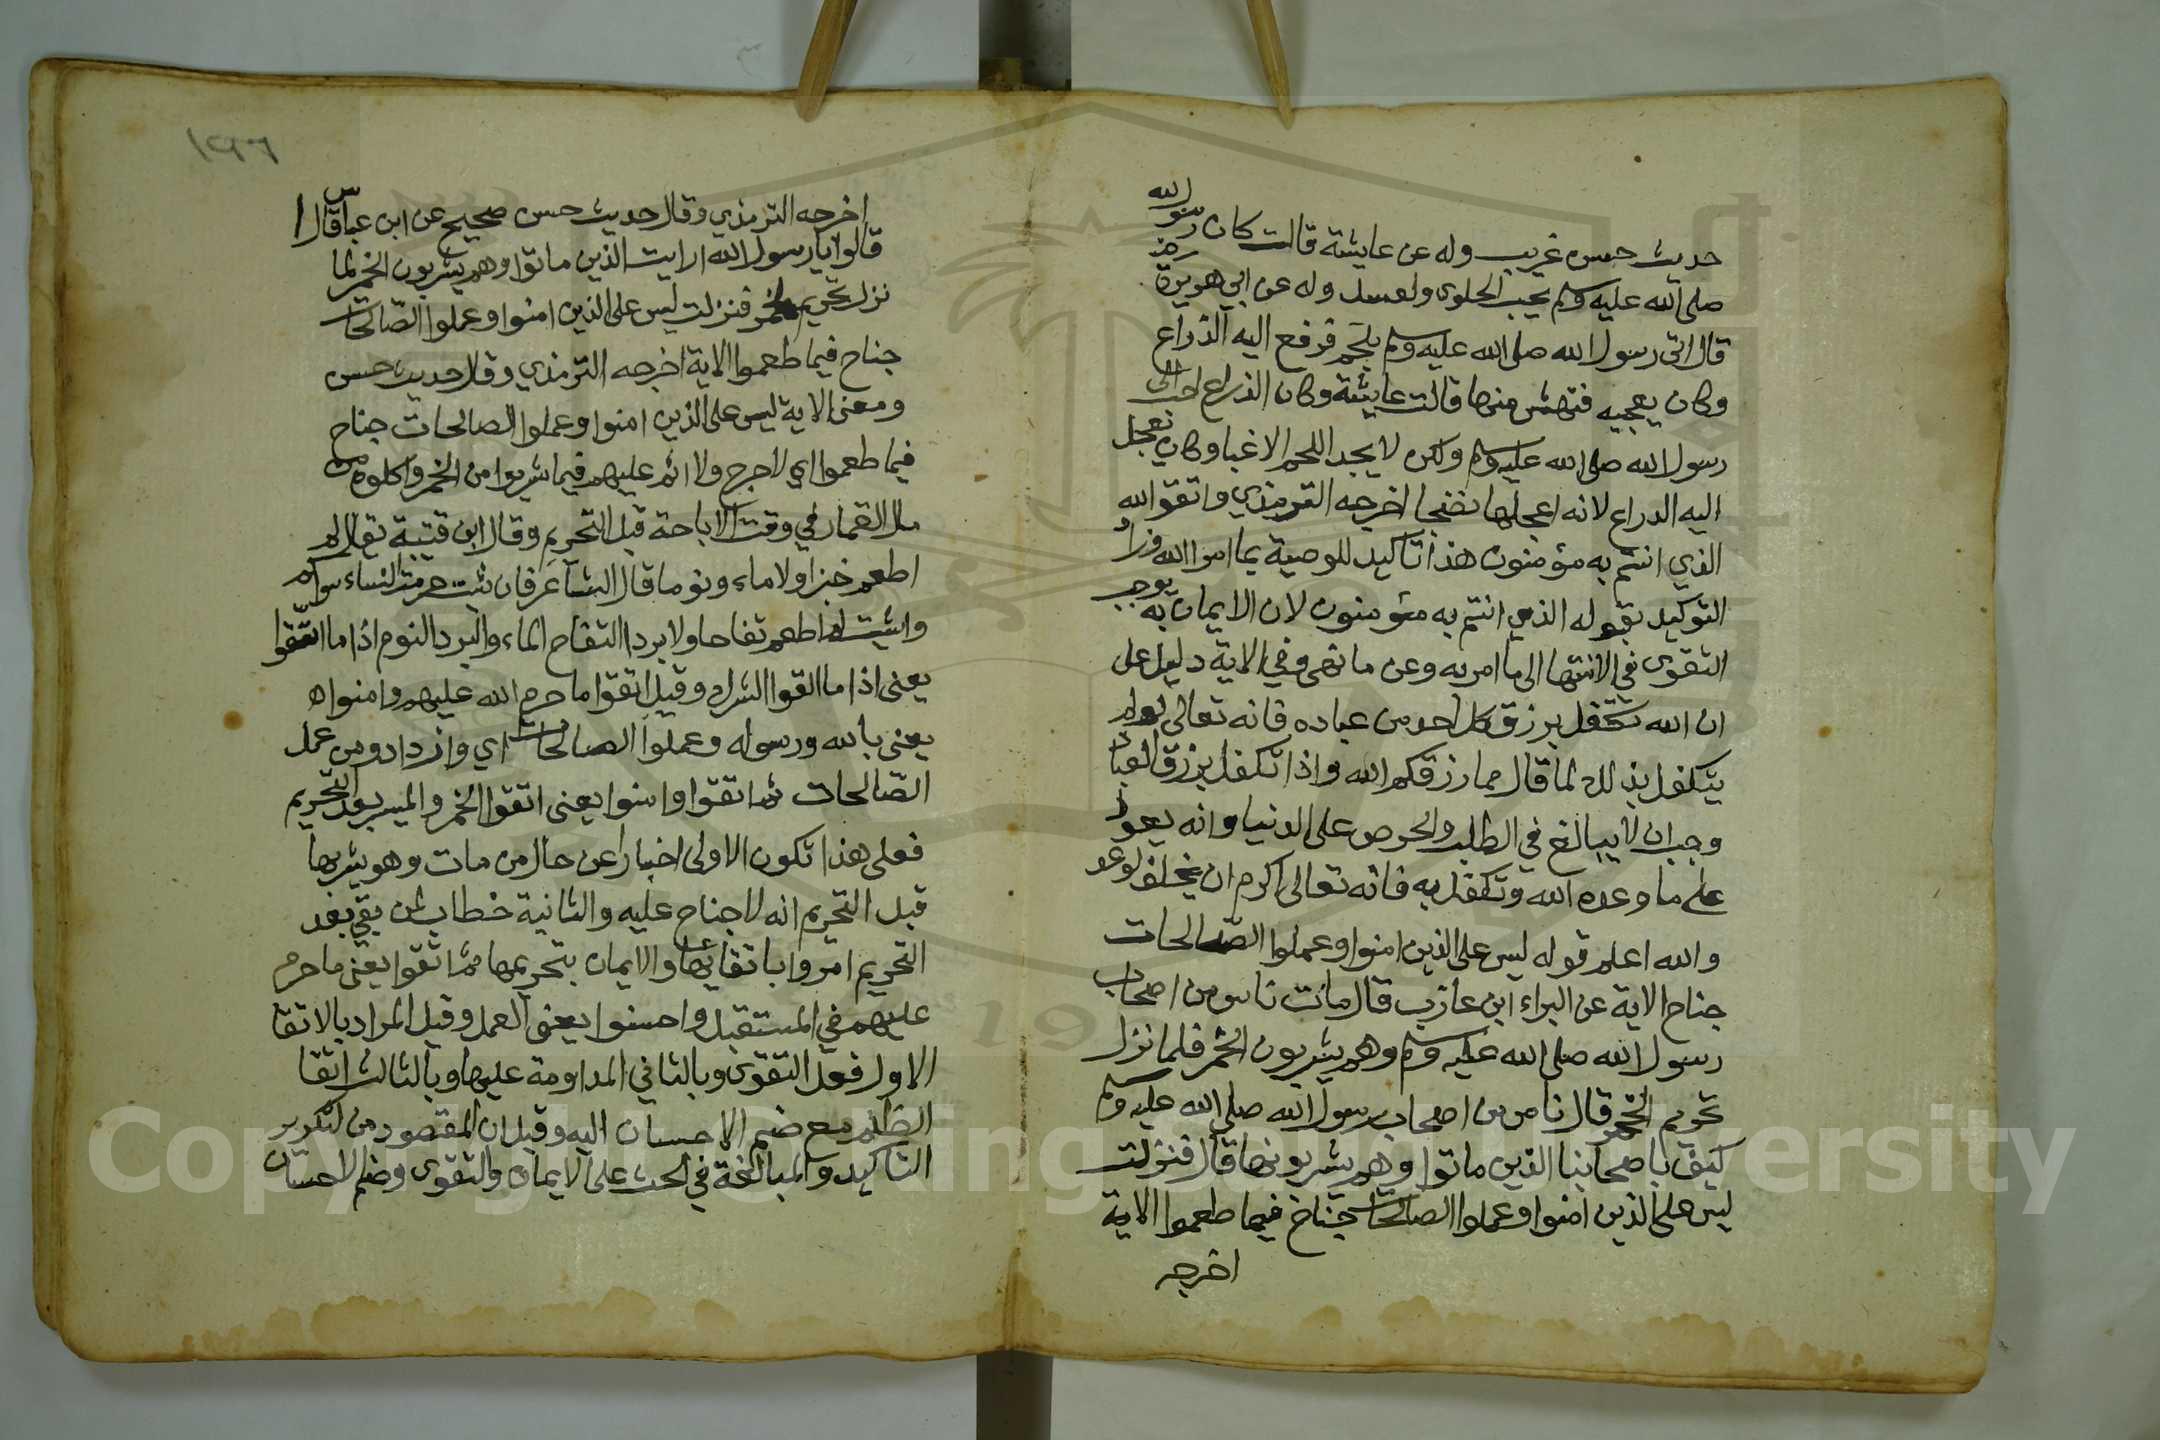 حديث حسن غريب وله عن عايشة قالت كان رسول الله
صلى الله عليه وسلم يحب الحلوى ولعسل وله عن ابي هريرة رضي
قال اتى رسول الله صلى الله عليه وسلم بلحم فرفع اليه الذراع
وكان يعجبه فنهش منها قالت عايشة وكان الذراع احب الى
رسول الله صلى الله عليه وسلم ولكن لا يجد اللحم الا غبا وكان يعجل
اليه الدراع لانه اعجلها نضجا اخرجه الترمذي واتقوا الله
الذي انتم به مؤمنون هذا تاكيد للوصية بما امر الله وزاد
التوكيد بقوله الذي انتم به مئومنون لان الايمان به يوجب
التقوى في الانتها الى ما امر به وعن ما نهى وفي الاية دليل على
ان الله تكفل برزق كل احد من عباده فانه تعالى لو لم
يتكفل بذلك لما قال مما رزقكم الله واذا تكفل برزق العباد
وجب ان لا يبالغ في الطلب والحرص على الدنيا وانه يعول
على ما وعده الله وتكفل به فانه تعالى اكرم ان يخلف لوعد
والله اعلم قوله ليس على الذين امنوا وعملوا الصالحات
جناح الاية عن البراء ابن عازب قال مات ناس من اصحاب
رسول الله صلى الله عليه وسلم وهم يشربون الخمر فلما نزل
تحريم الخمر قال ناس من اصحاب رسول الله صلى الله عليه وسلم
كيف باصحابنا الذين ماتوا وهم يشربونها قال فنزلت
ليس على الذين امنوا وعملوا الصالحات جناح فيما طعموا الاية
اخرجه
١٩٦
اخرجه الترمذي وقال حديث حسن صحيح عن ابن عباس قال
قالوا يا رسول الله ارايت الذين ماتوا وهم يشربون الخمر لما
نزل تحريم الخمر فنزلت ليس على الذين امنوا وعملوا الصّالحات
جناح فيما طعموا الاية اخرجه الترمذي وقال حديث حسن
ومعنى الاية ليس على الذين امنوا وعملوا الصالحات جناح
فيما طعموا اي لا حرج ولا اثم عليهم فيما شربوا من الخمر واكلوه من
مال القمار في وقت الاباحة قبل التحريم وقال ابن قتيبة يقال لم
اطعم خبزا ولا ماء ونوما قال الشاعر فان شئت حرمت النساء سواكم
وان شئت لم اطعم نفاحا ولا بردا النفاح الماء والبرد النوم اذا ما اتّقوا
يعنى اذا ما اتقوا الشرك وقيل اتقوا ما حرم الله عليهم وامنوا
يعنى بالله ورسوله وعملوا الصالحات اي وازدادو من عمل
الصّالحات ثم اتقوا وامنوا يعنى اتقوا الخمر والميسر بعد التحريم
فعلى هذا تكون الاولى اخبارا عن حال من مات وهو يشربها
قبل التحريم انه لا جناح عليه والثانية خطاب لمن بقي بعد
التحريم امروا باتقائها والايمان بتحريمها ثم اتقوا يعنى ما حرم
عليهم في المستقبل واحسنوا يعنى العمل وقيل المراد بالاتقا
الاول فعل التقوى وبالثاني المداومة عليها وبالثالث اتقا
الظلم مع ضم الاحسان اليه وقيل ان المقصود من لتكرير
التاكيد والمبالغة في الحث على الايمان والتقوى وضم الاحسان
Copyright © King Saud University